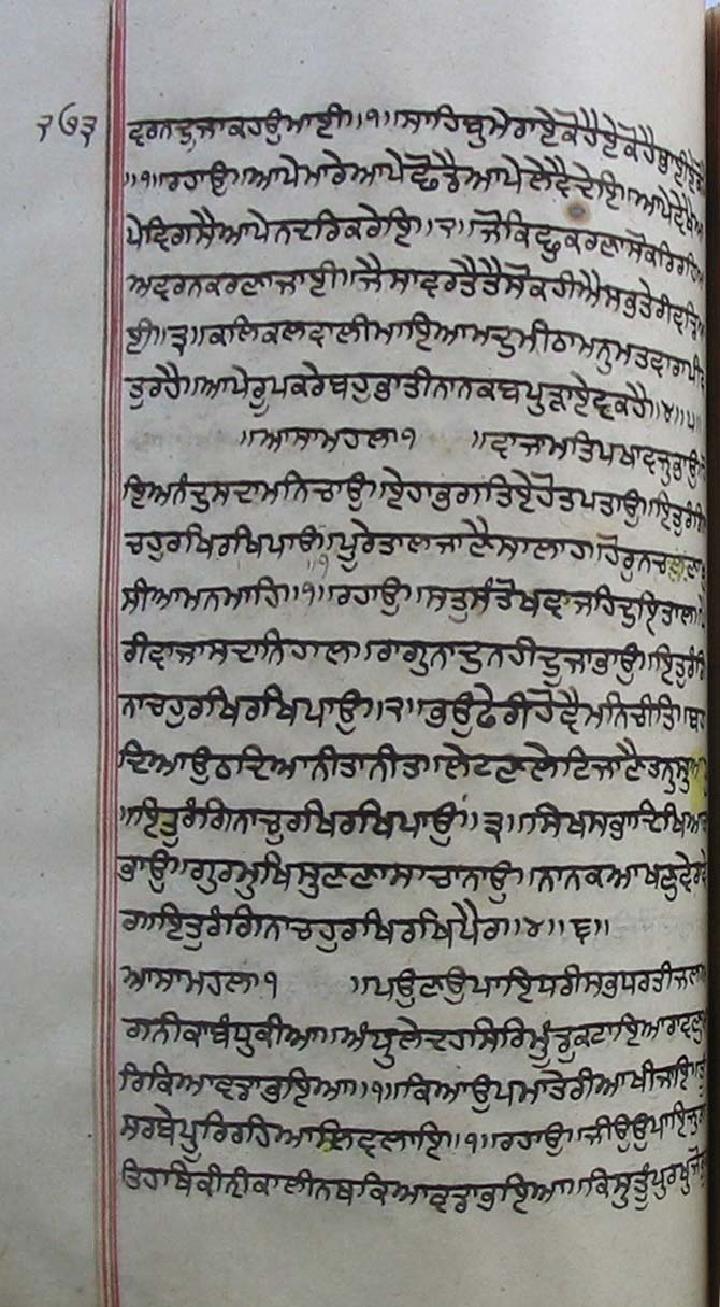 ੨੭੩
ਵਰਨਦੂਜਾਕਹਉਮਾਈ॥੧॥ਸਾਹਿਬੁਮੇਰਾਏਕੋਹੈਏਕੋਹੈਭਾਈਏਕੋ
॥੧॥ਰਹਾਉ॥ਆਪੇਮਾਰੇਆਪੇਛੋਡੈਆਪੇਲੇਵੈਦੇਇ॥ਆਪੇਵੇਖੈਆ
ਪੇਵਿਗਸੈਆਪੇਨਦਰਿਕਰੇਇ॥੨॥ਜੋਕਿਛੁਕਰਣਾਸੋਕਰਿਰਹਿਆ
ਅਵਰਨਕਰਣਾਜਾਈ॥ਜੈਸਾਵਰਤੈਤੈਸੋਕਹੀਐਸਭਤੇਰੀਵਡਿਆ
ਈ॥੩॥ਕਲਿਕਲਵਾਲੀਮਾਇਆਮਦੁਮੀਠਾਮਨੁਮਤਵਾਰਾਪੀਵ
ਤੁਰਹੈ॥ਆਪੇਰੂਪਕਰੇਬਹੁਭਾਤੀਨਾਨਕਬਪੁੜਾਏਵਕਹੈ॥੪॥੫॥
॥ਆਸਾਮਹਲਾ੧ ॥ਵਾਜਾਮਤਿਪਖਾਵਜੁਭਾਉ॥ਹੋ
ਇਅਨੰਦੁਸਦਾਮਨਿਚਾਉ॥ਏਹਾਭਗਤਿਏਹੋਤਪਤਾਉ॥ਇਤੁਰੰਗਿ
ਚਹੁਰਖਿਰਖਿਪਾਉ॥੧॥ਪੂਰੇਤਾਲਜਾਣੈਸਾਲਾਹ॥ਹੋਰੁਨਚਣਾ
ਸੀਆਮਨਮਾਹਿ॥੧॥ਰਹਾਉ॥ਸਤੁਸੰਤੋਖਵਾਜਹਿਦੁਇਤਾਲ॥ਪੈ
ਰੀਵਾਜਾਸਦਾਨਿਹਾਲ॥ਰਾਗੁਨਾਦੁਨਹੀਦੂਜਾਭਾਉ॥ਇਤੁਰੰਗਿ
ਨਾਚਹੁਰਖਿਰਖਿਪਾਉ॥੨॥ਭਉਫੇਰੀਹੋਵੈਮਨਿਚੀਤਿ॥ਬਹ
ਦਿਆਉਠਦਿਆਨੀਤਾਨੀਤ॥ਲੇਟਣਲੇਟਿਜਾਣੈਤਨੁਸੁਆ
॥ਇਤੁਰੰਗਿਨਾਚੁਰਖਿਰਖਿਪਾਉ॥੩॥ਸਿਖਸਭਾਦਿਖਿਆ
ਭਾਉ॥ਗੁਰਮੁਖਿਸੁਣਣਾਸਾਚਾਨਾਉ॥ਨਾਨਕਆਖਣੁਵੇਰਾਵੇ
ਰਾ॥ਇਤੁਰੰਗਿਨਾਚਹੁਰਖਿਰਖਿਪੈਰਾ॥੪॥੬॥
ਆਸਾਮਹਲਾ੧ ॥ਪਉਣੁਉਪਾਇਧਰੀਸਭਧਰਤੀਜਲਅ
ਗਨੀਕਾਬੰਧੁਕੀਆ॥ਅੰਧੁਲੇਦਹਸਿਰਿਮੂੰਡੁਕਟਾਇਆਰਾਵਣੁ
ਰਿਕਿਆਵਡਾਭਇਆ॥੧॥ਕਿਆਉਪਮਾਤੇਰੀਆਖੀਜਾਇ॥ਤੂ
ਸਰਬੇਪੂਰਿਰਹਿਆਲਿਵਲਾਇ॥੧॥ਰਹਾਉ॥ਜੀਉਉਪਾਇਜੁਗ
ਤਿਹਾਥਿਕੀਨੀਕਾਲੀਨਥਕਿਆਵਡਾਭਇਆ॥ਕਿਸੁਤੂੰਪੁਰਖੁਜੋ